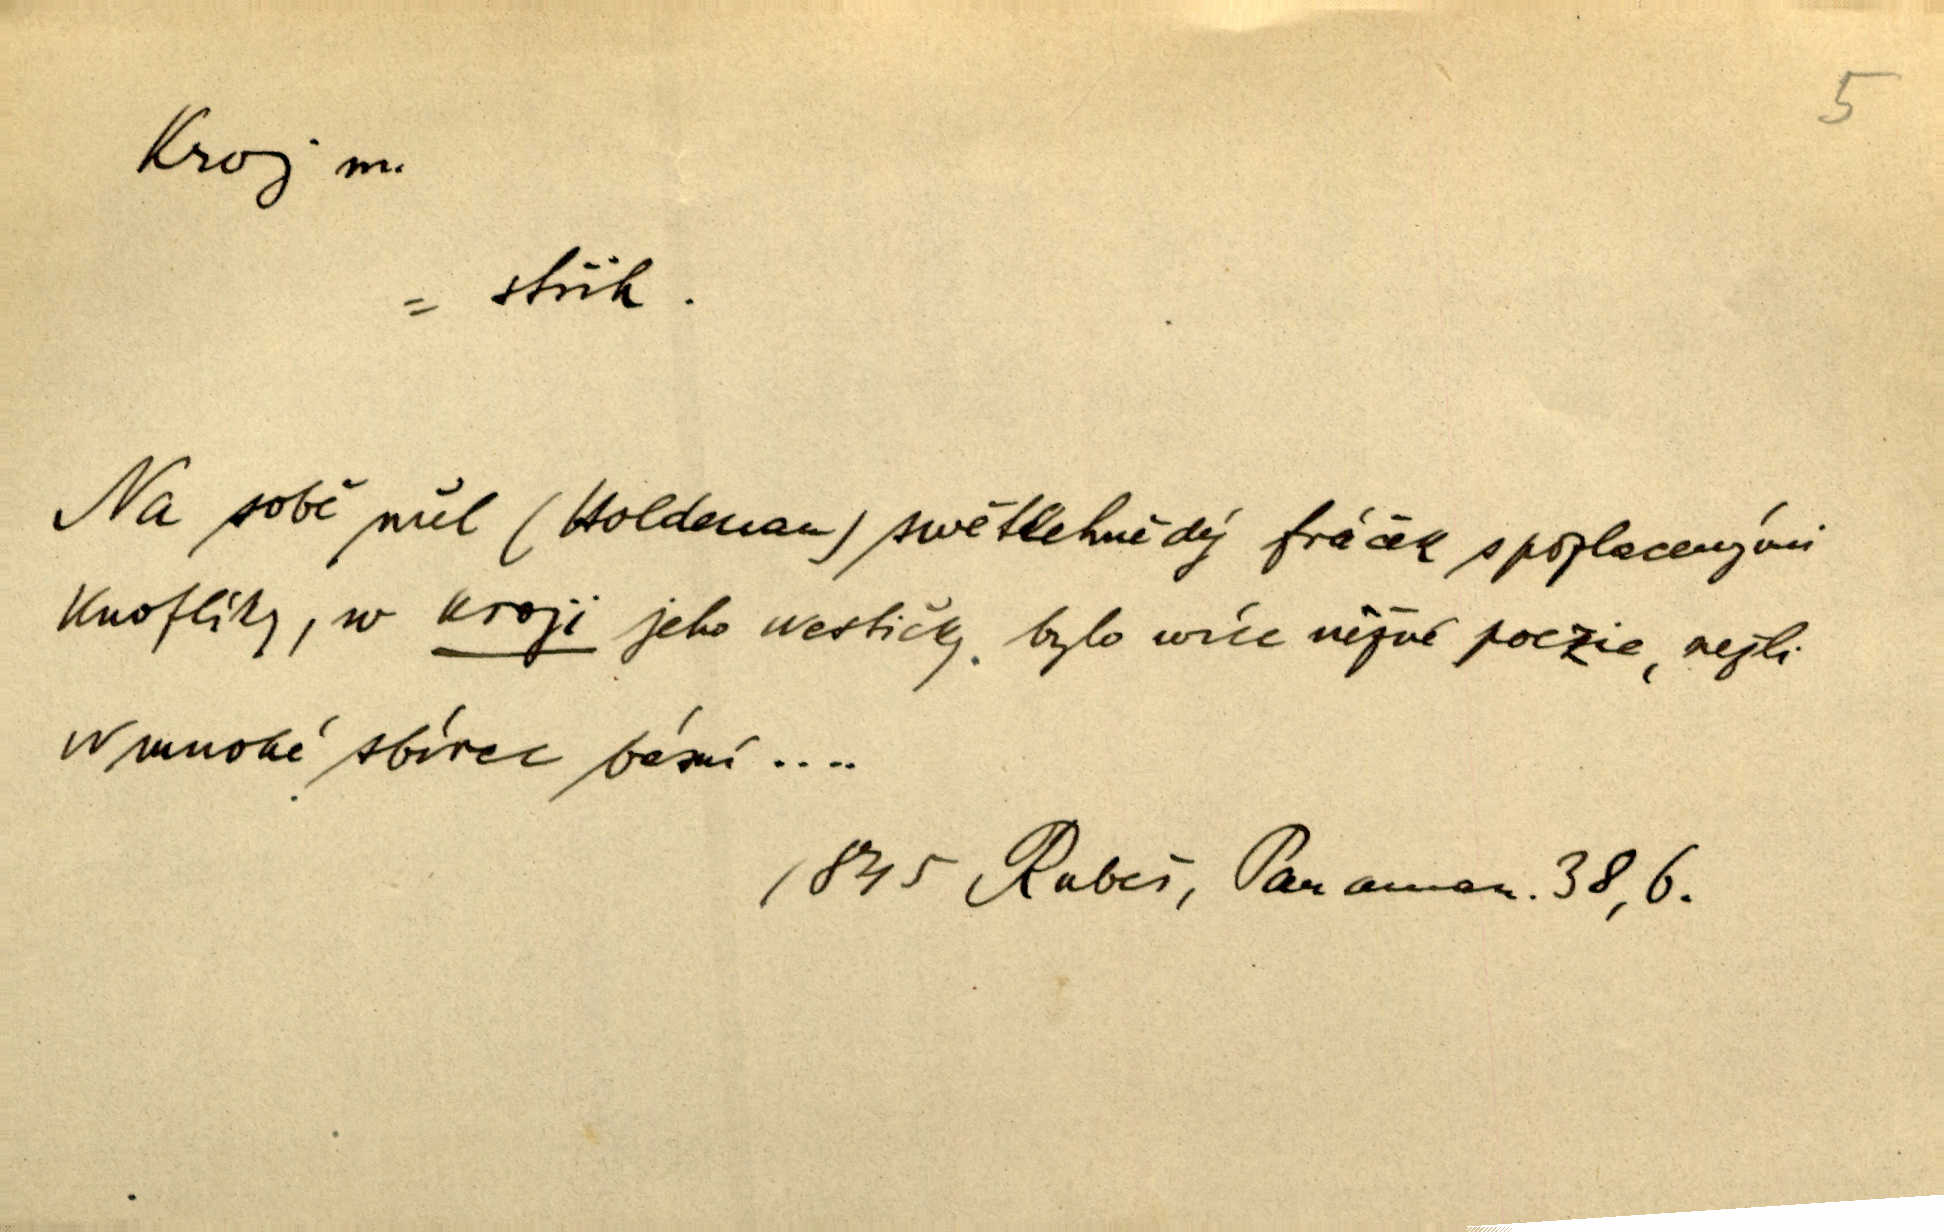 5
Kroj m.
= střih.
Na sobě měl (Holdeman) swětlehnědý fráček s pozlacenými
knoflíky, w kroji jeho westičky bylo wíce něžné poezie, nežli
w mnohé sbírce básní ....
1845 Rubeš, Par aman. 38, 6.